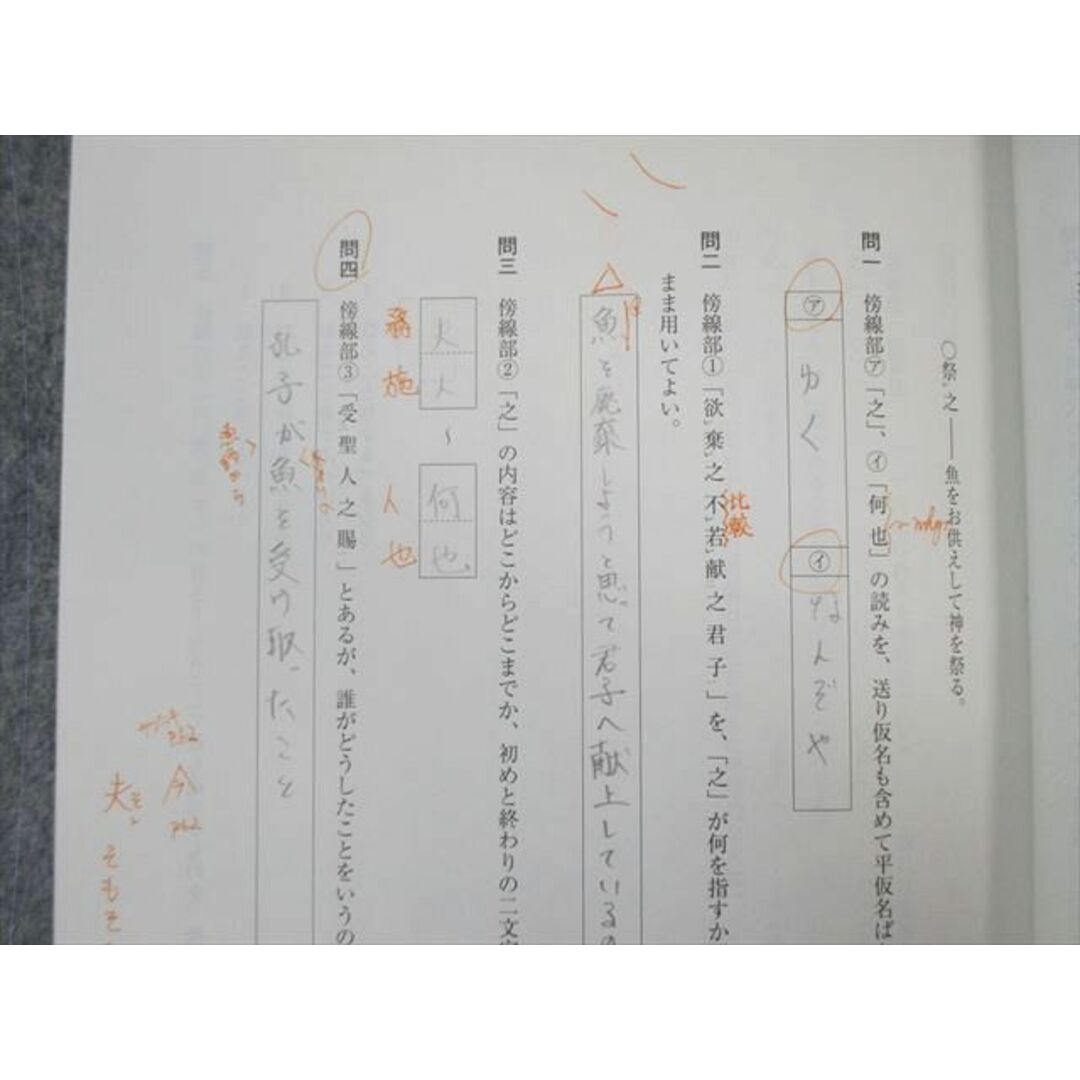 ○祭之――魚をお供えして神を祭る。
問一 傍線部㋐「之」、㋑「何也」の読みを、送り仮名も含めて平仮名ば
㋐ ゆく
㋑ なんぞや
問二 傍線部①「欲棄之不若献之君子」を、「之」が何を指すか
比較
まま用いてよい。
魚を廃棄しようと思って君子へ献上している
問三 傍線部②「之」の内容はどこからどこまでか、初めと終わりの二文字
夫人～何也
務施 人也
問四 傍線部③「受聖人之賜」とあるが、誰がどうしたことをいうの
孔子が魚を受け取ったこと
今
夫 そもそ